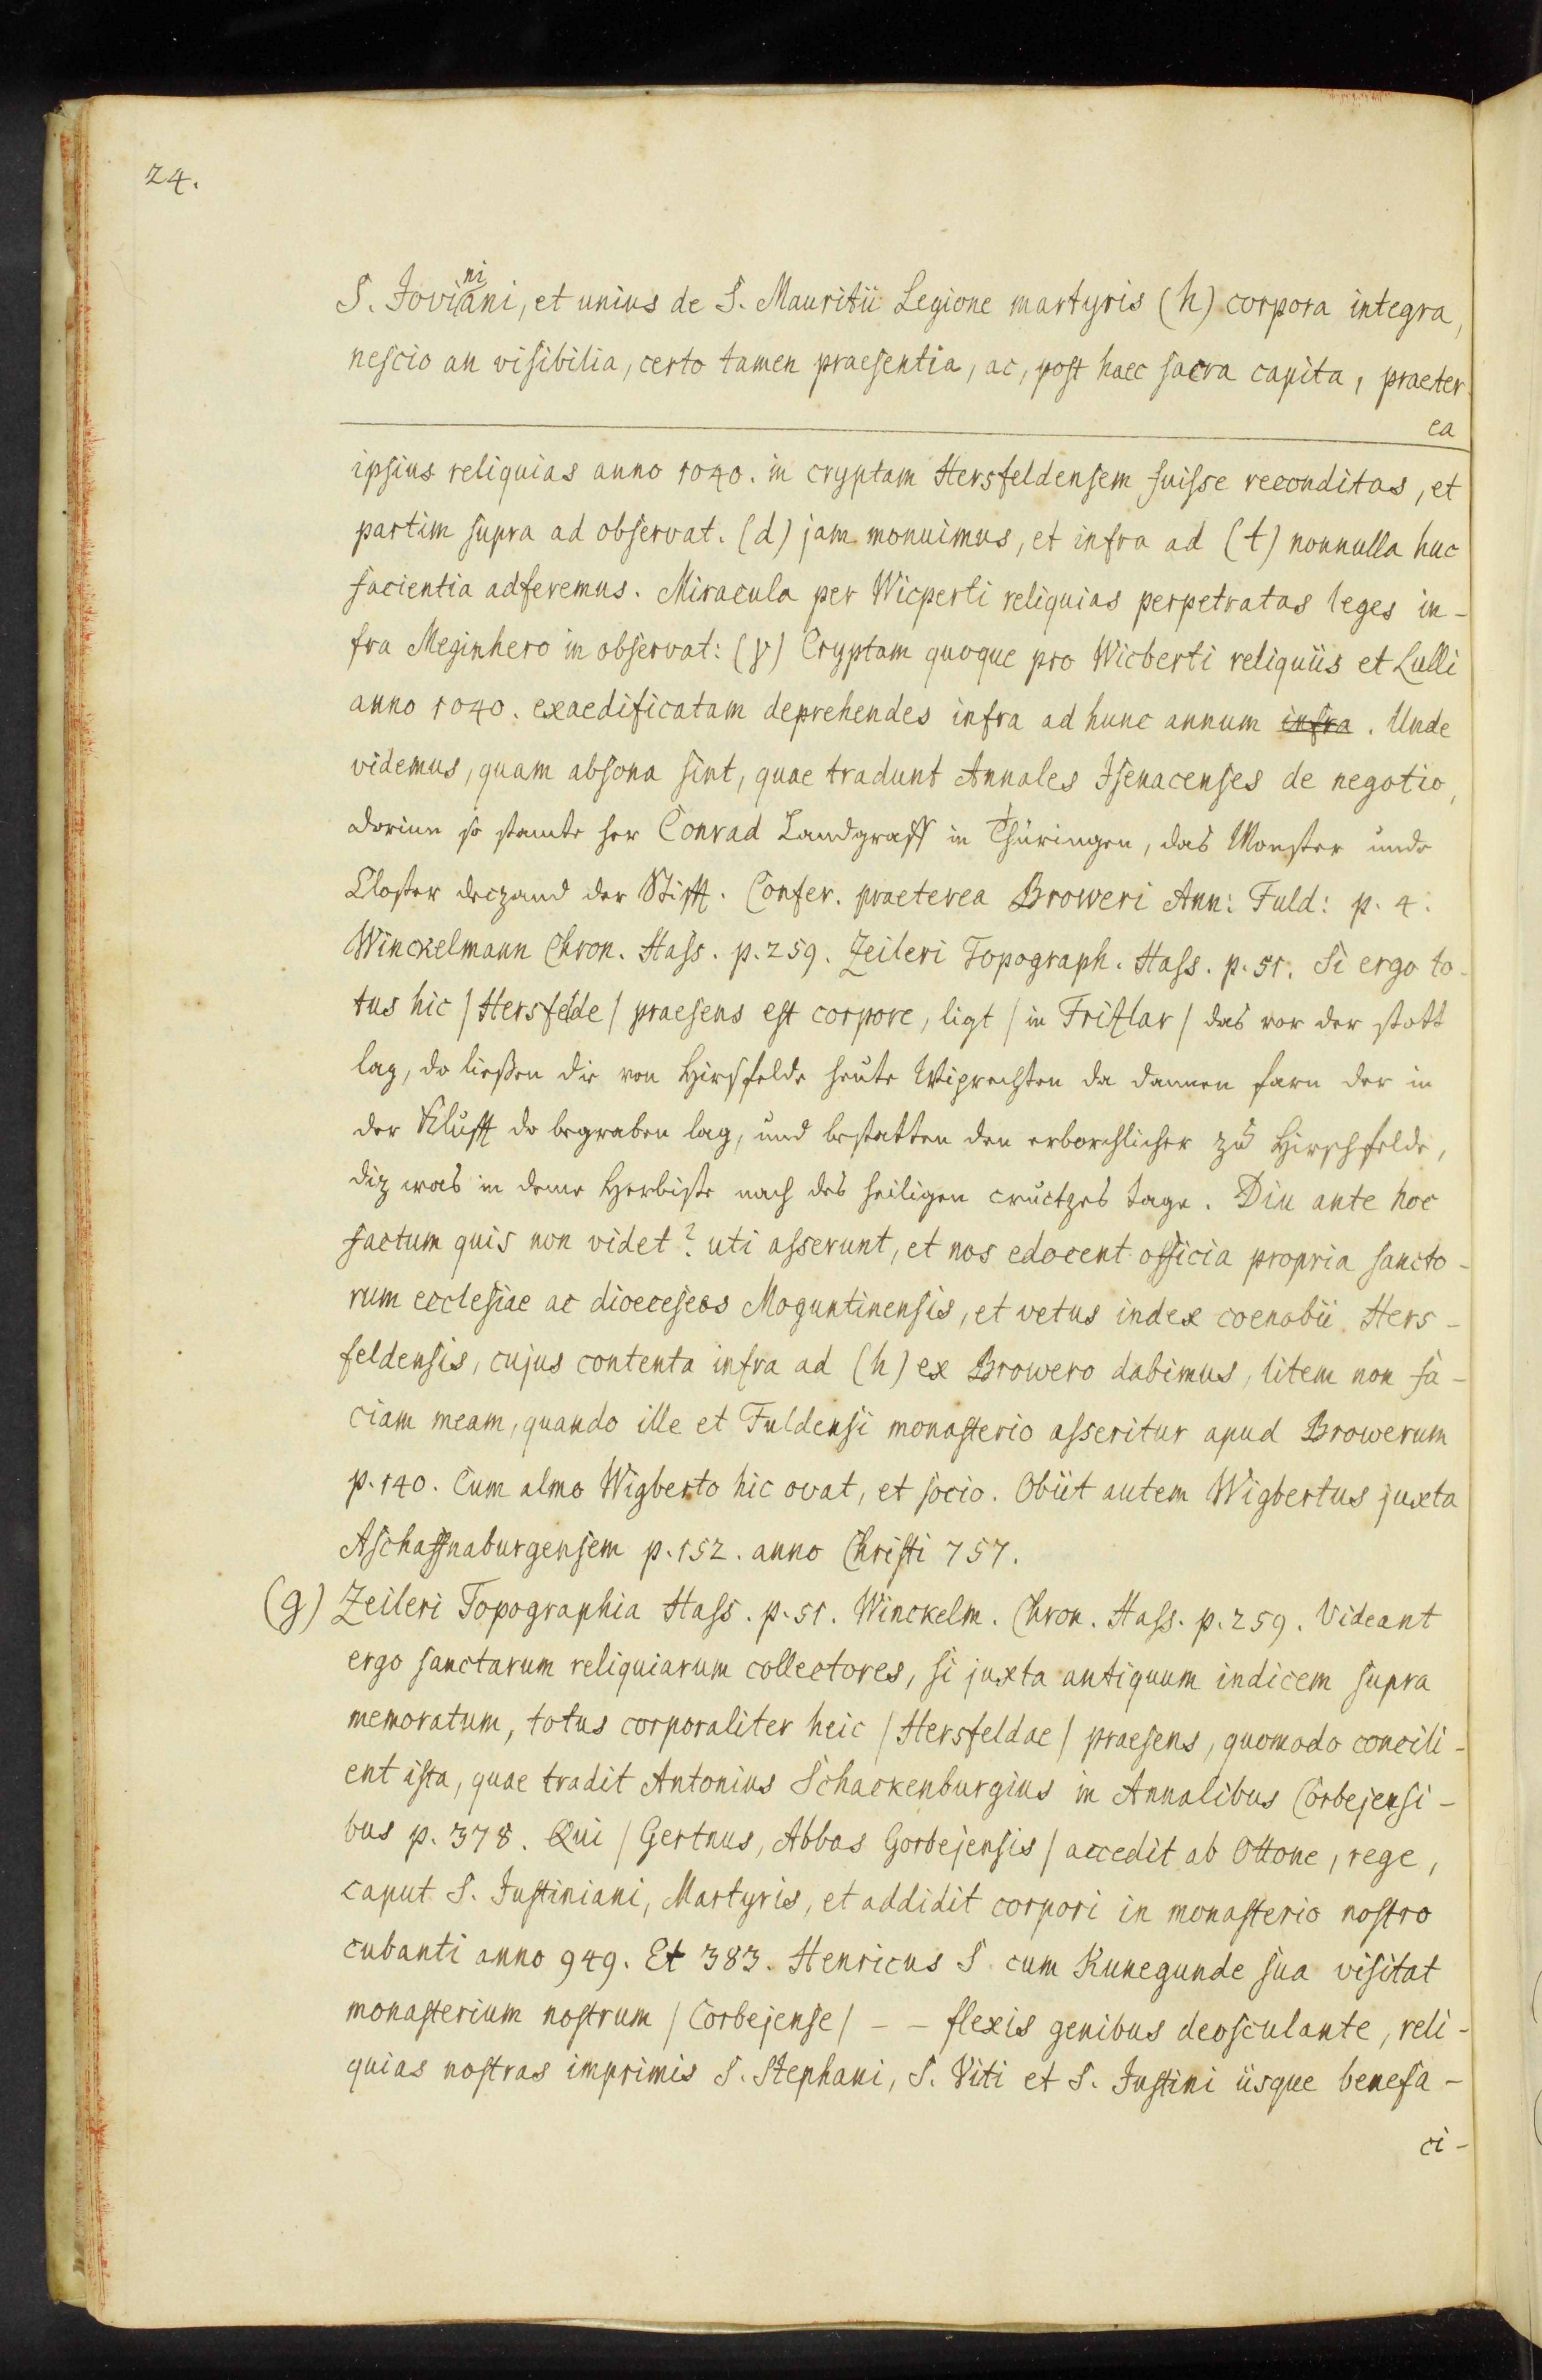 24.
S. Joviniani, et unius de S. Mauritii Legione martyris (h) corpora integra,
nescio an visibilia, certo tamen praesentia, ac, post haec sacra capita, praeter
ea
ipsius reliquias anno 1040. in cryptam Hersfeldensem fuisse reconditas, et
partim supra ad observat. (d) jam monuimus, et infra ad (t) nonnulla huc
facientia adferemus. Miracula per Wicperti reliquias perpetratas leges in-
fra Meginhero in observat: (y) Cryptam quoque pro Wicberti reliquiis et Lulli
anno 1040. exaedificatam deprehendes infra ad hunc annum infra. Unde
videmus, quam absona sint, quae tradunt Annales Isenacenses de negotio,
dorinn so stamte her Conrad Landgraff in Thüringen, das Monster unde
Closter deczand der Stifft. Confer. praeterea Broweri Ann: Fuld: p. 4.
Winckelmann Chron. Hass. p. 259. Zeileri Topograph. Hass. p. 51. Si ergo to-
tus hic / Hersfelde / praesens est corpore, ligt / in Fritzlar / das vor der statt
lag, do ließen die von Hirsfelde heute Wiprechten da dannen farn der in
der Klufft do begraben lag, und bestatten den erborchlicher zu Hirschfelde,
diz was in deme Herbiste nach des heiligen cructzes tage. Diu ante hoc
factum quis non videt? uti asserunt, et nos edocent officia propria sancto-
rum ecclesiae ac dioeceseos Moguntinensis, et vetus index coenobii Hers-
feldensis, cujus contenta infra ad (h) ex Browero dabimus, litem non fa-
ciam meam, quando ille et Fuldensi monasterio asseritur apud Browerum
p. 140. Cum almo Wigberto hic ovat, et socio. Obiit autem Wigbertus juxta
Aschaffnaburgensem p. 152. anno Christi 757.
(g) Zeileri Topographia Hass. p. 51. Winckelm. Chron. Hass. p. 259. Videant
ergo sanctarum reliquiarum collectores, si juxta antiquum indicem supra
memoratum, totus corporaliter heic / Hersfeldae / praesens, quomodo concili-
ent ista, quae tradit Antonius Schackenburgius in Annalibus Corbejensi-
bus p. 378. Qui / Gertnus, Abbas Gorbejensis / accedit ab Ottone, rege,
caput S. Justiniani, Martyris, et addidit corpori in monasterio nostro
cubanti anno 949. Et 383. Henricus S. cum Kunegunde sua visitat
monasterium nostrum / Corbejense / - - flexis genibus deosculante, reli-
quias nostras imprimis S. Stephani, S. Viti et S. Justini iisque benefa-
ci-